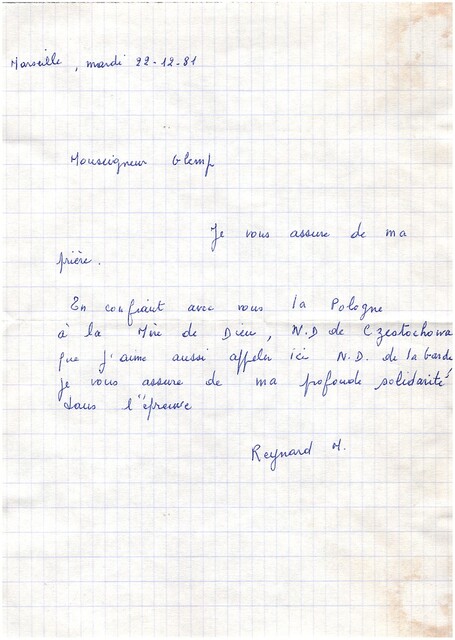 Marseille, mardi 22-12-81
Monseigneur Glemp
Je vous assure de ma
prière.
En confiant avec vous la Pologne
à la Mère de Dieu, N.D de Czestochowa
que j'aime aussi appeler ici N.D. de la Garde
je vous assure de ma profonde solidarité
dans l'épreuve
Reynard M.